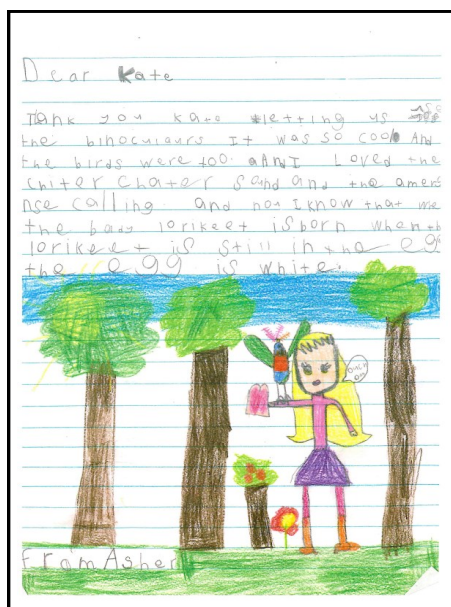 Dear Kate
Thank you kate letting us
the binoculours It was so cool And
the birds were too. aAnd I Loved the
chiter Chater Sound and the amere
nse calling. and not I know that we
the bady lorikeet is born when th
lorikeet is still in the egg
the egg is white.
OUCH
From Asher